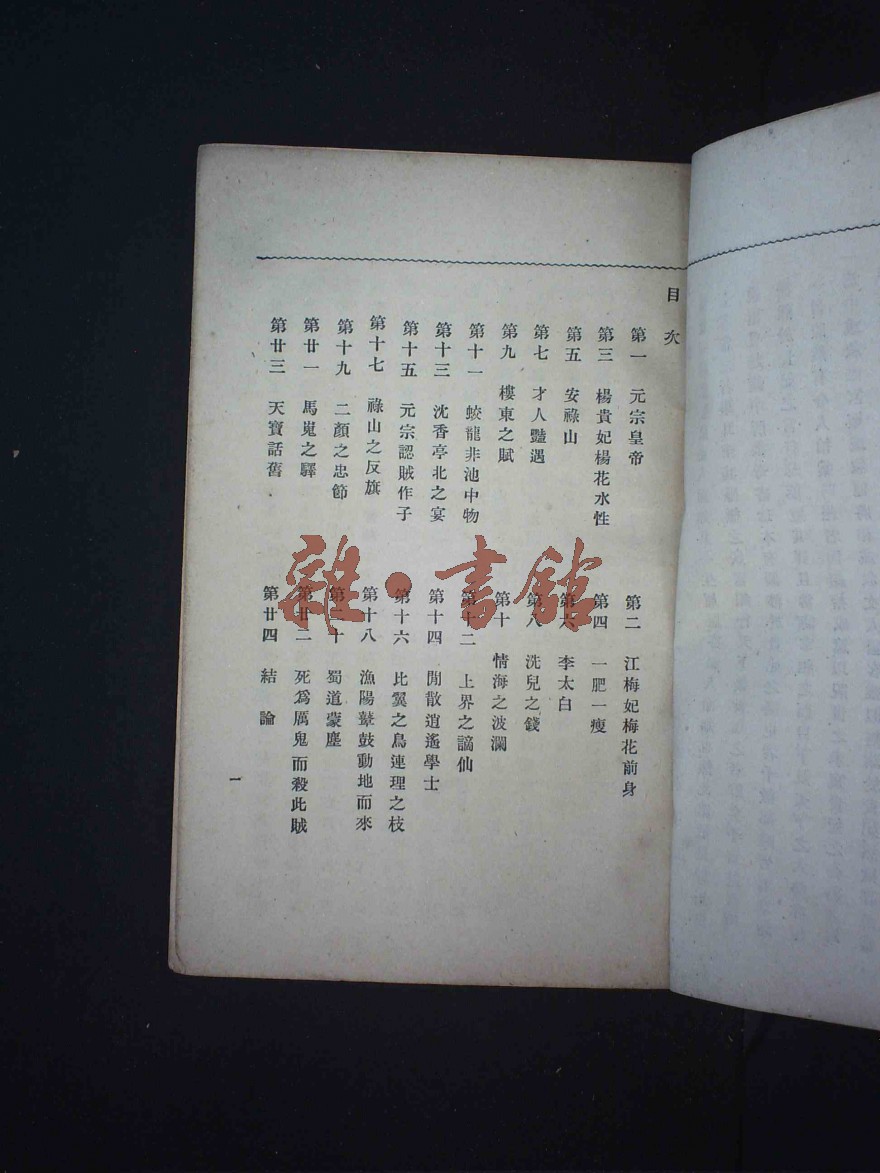 目次
第一　元宗皇帝
第二　江梅妃梅花前身
第三　楊貴妃楊花水性
第四　一肥一瘦
第五　安祿山
第六　李太白
第七　才人豔遇
第八　洗兒之錢
第九　樓東之賦
第十　情海之波瀾
第十一　蛟龍非池中物
第十二　上界之謫仙
第十三　沈香亭北之宴
第十四　閒散逍遙學士
第十五　元宗認賊作子
第十六　比翼之鳥連理之枝
第十七　祿山之反旗
第十八　漁陽鼙鼓動地而來
第十九　二顏之忠節
第二十　蜀道蒙塵
第廿一　馬嵬之驛
第廿二　死爲厲鬼而殺此賊
第廿三　天寶話舊
第廿四　結論
一
雜·書館